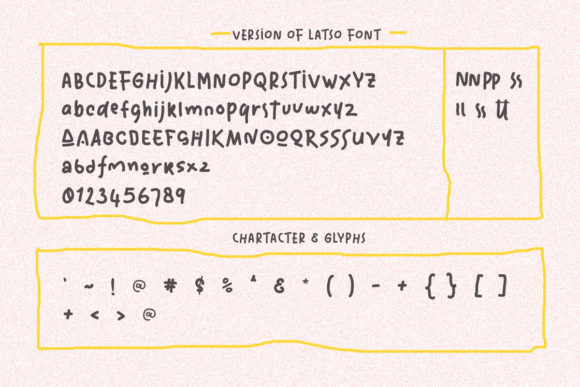 VERSION OF LATSO FONT
ABCDEFGHIJKLMNOPQRSTUVWXYZ
abcdefghijklmnopqrstuvwxyz
ΔAABCDEEFGHIKMNOQRSSSUVYZ
abdfmnorksxz
0123456789
NNPP SS
ll ss tt
CHARTACTER & GLYPHS
` ~ ! @ # $ % ^ & * ( ) - + { } [ ]
+ < > @